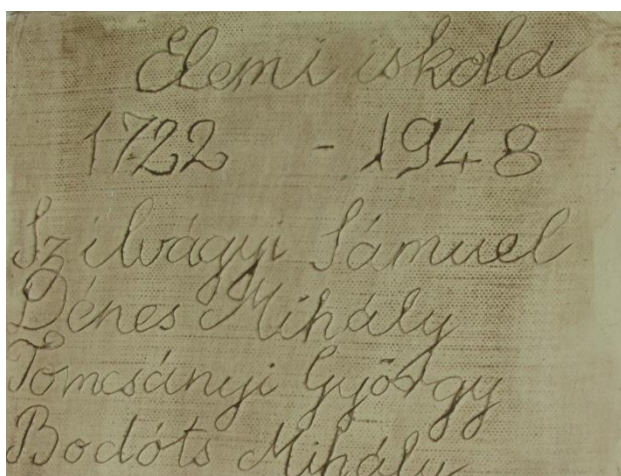 Elemi iskola
1722 - 1948
Szilvágyi Sámuel
Dénes Mihály
Tomcsányi György
Bodóts Mihály